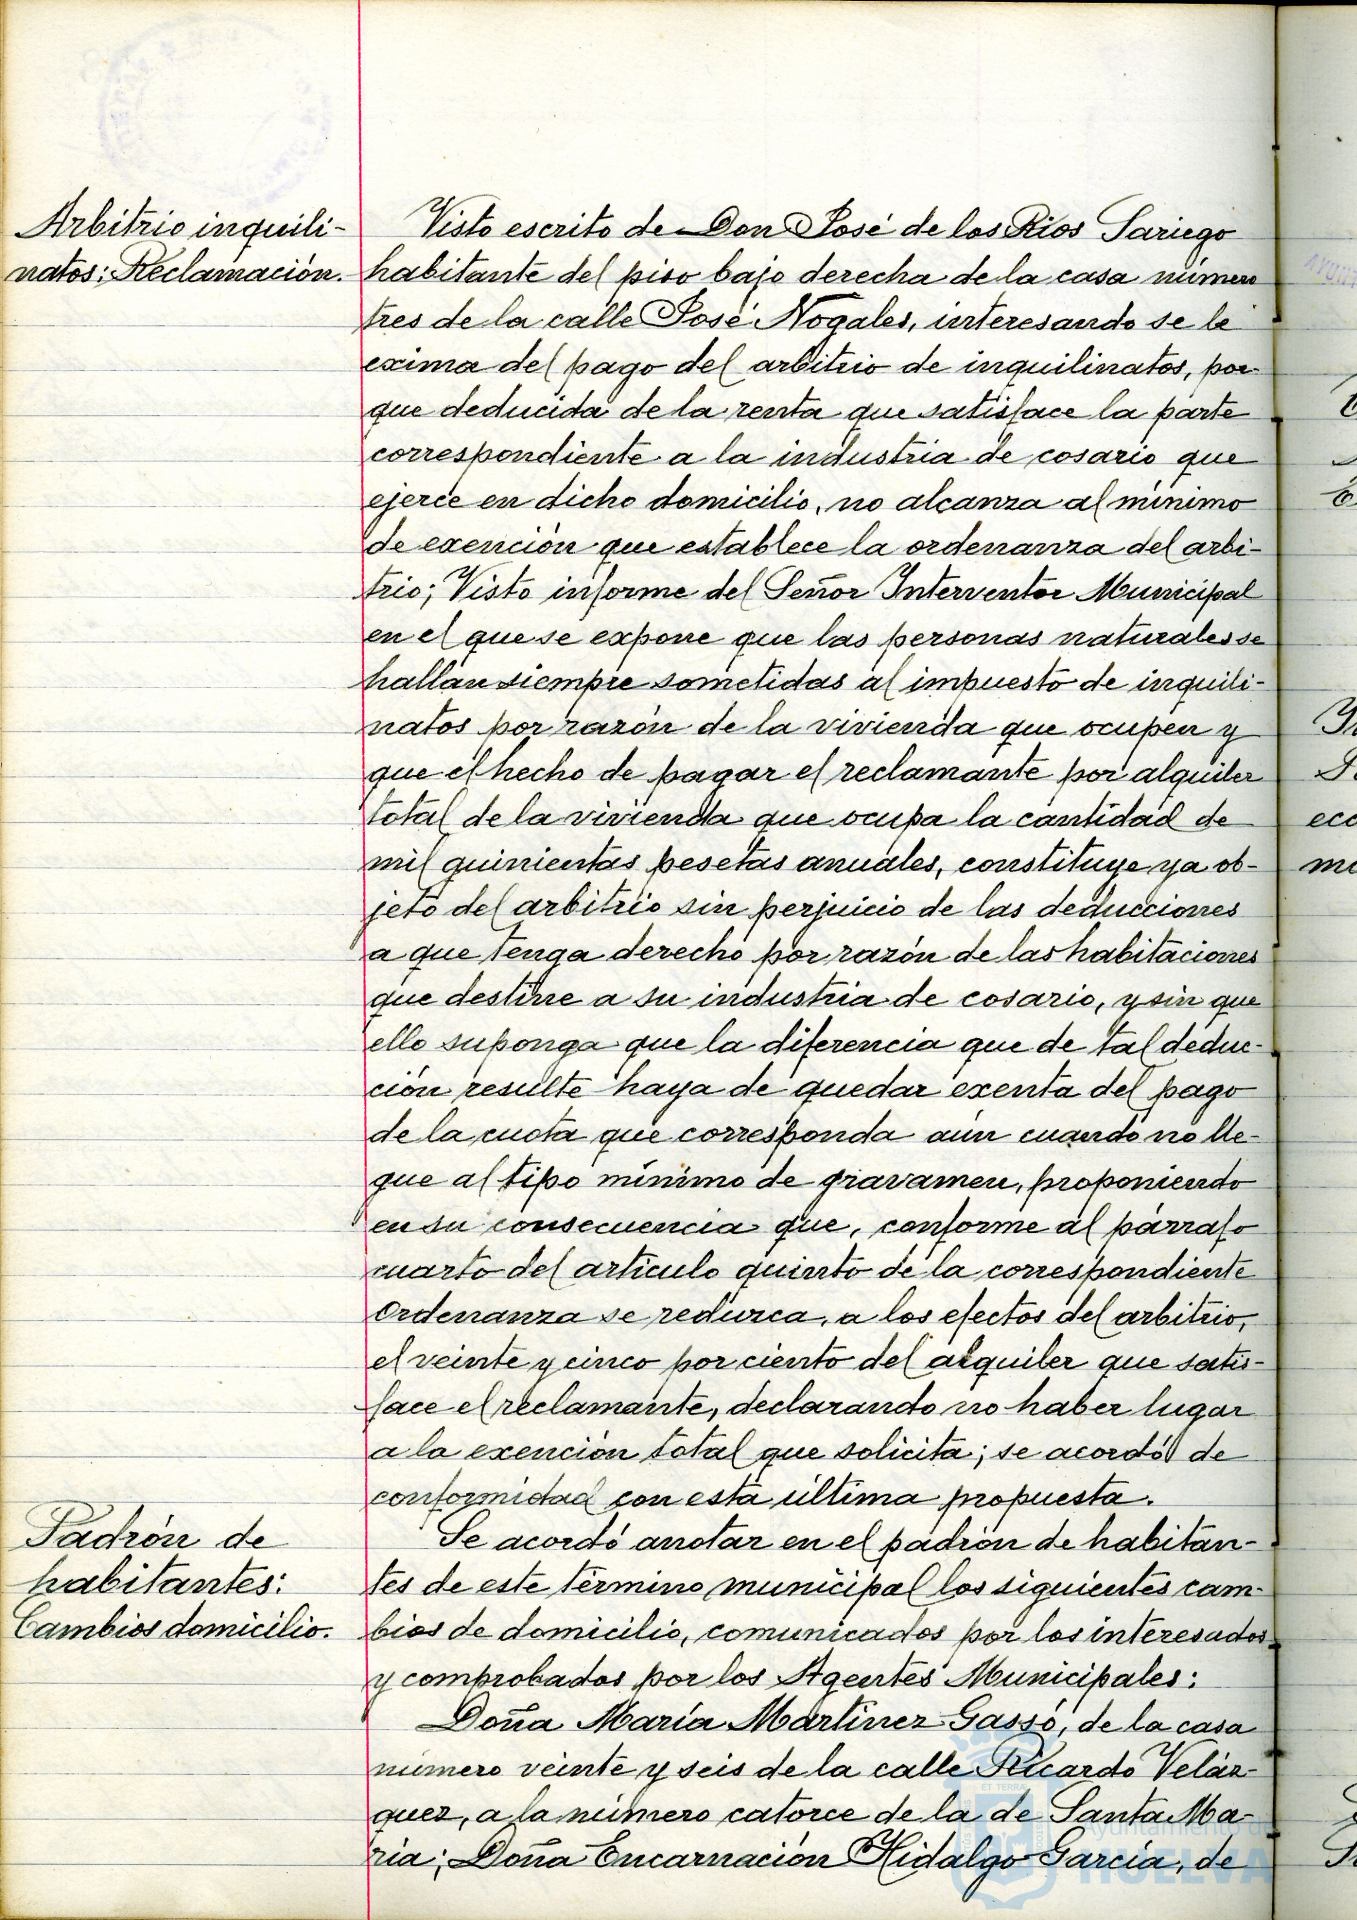 Arbitrio inquili-
natos: Reclamación.
Visto escrito de Don José de los Ríos Sariego
habitante del piso bajo derecha de la casa número
tres de la calle José Nogales, interesando se le
exima del pago del arbitrio de inquilinatos, por-
que deducida de la renta que satisface la parte
correspondiente a la industria de cosario que
ejerce en dicho domicilio, no alcanza al mínimo
de exención que establece la ordenanza del arbi-
trio; Visto informe del Señor Interventor Municipal
en el que se expone que las personas naturales se
hallan siempre sometidas al impuesto de inquili-
natos por razón de la vivienda que ocupen y
que el hecho de pagar el reclamante por alquiler
total de la vivienda que ocupa la cantidad de
mil quinientas pesetas anuales, constituye ya ob-
jeto del arbitrio sin perjuicio de las deducciones
a que tenga derecho por razón de las habitaciones
que destine a su industria de cosario, y sin que
ello suponga que la diferencia que de tal deduc-
ción resulte haya de quedar exenta del pago
de la cuota que corresponda aún cuando no lle-
gue al tipo mínimo de gravamen, proponiendo
en su consecuencia que, conforme al párrafo
cuarto del artículo quinto de la correspondiente
Ordenanza se reduzca, a los efectos del arbitrio,
el veinte y cinco por ciento del alquiler que satis-
face el reclamante, declarando no haber lugar
a la exención total que solicita; se acordó de
conformidad con esta última propuesta.
Padrón de
habitantes:
Cambios domicilio.
Se acordó anotar en el padrón de habitan-
tes de este término municipal los siguientes cam-
bios de domicilio, comunicados por los interesados
y comprobados por los Agentes Municipales:
Doña María Martínez Gassó, de la casa
número veinte y seis de la calle Ricardo Veláz-
quez, a la número catorce de la de Santa Ma-
ría; Doña Encarnación Hidalgo García, de
Ayuntamiento de
HUELVA